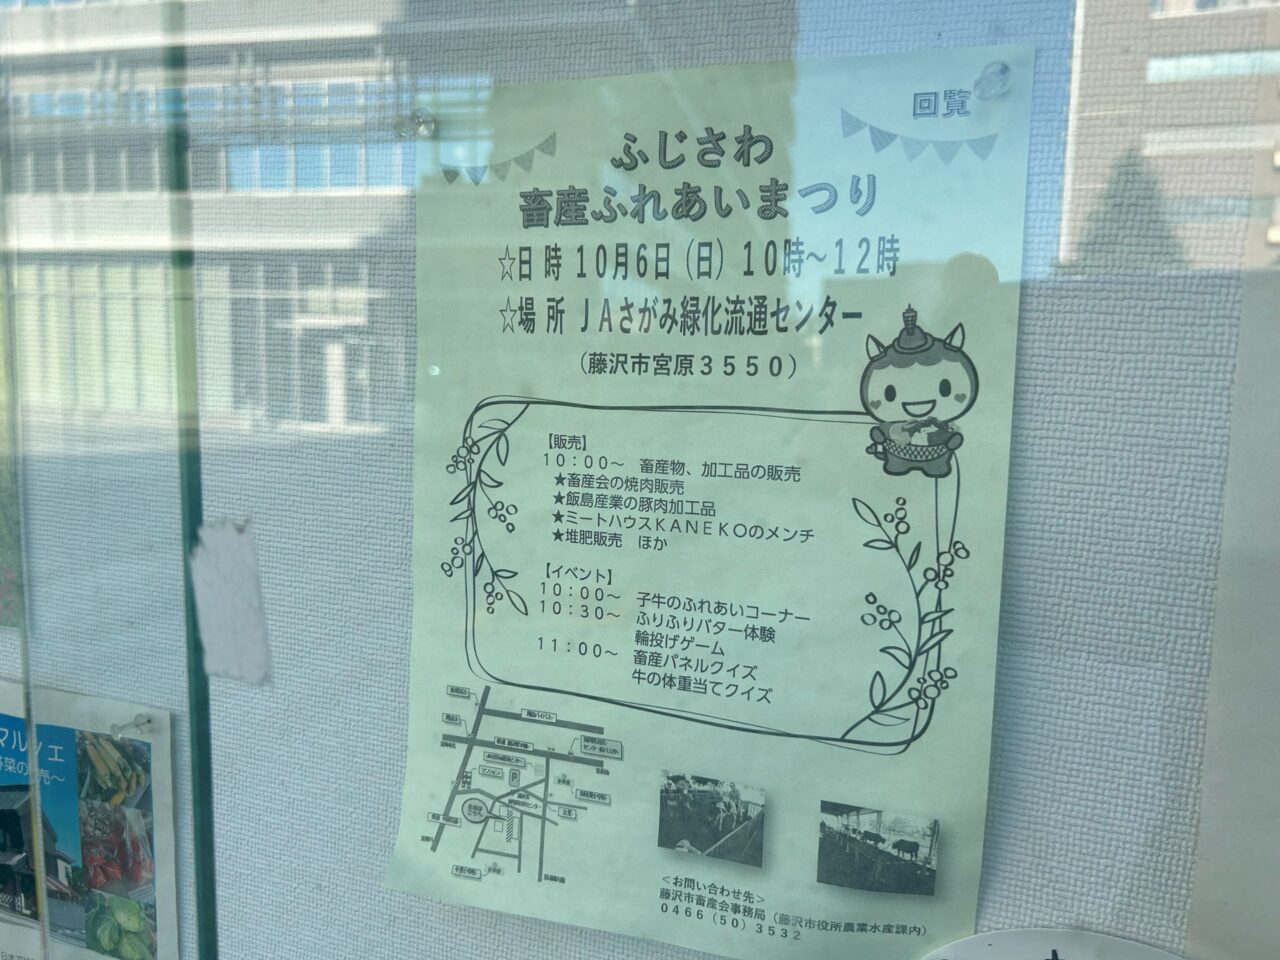 回覧
ふじさわ
畜産ふれあいまつり
☆日 時 10月6日（日）10時～12時
☆場 所 JAさがみ緑化流通センター
（藤沢市宮原3550）
【販売】
10：00～ 畜産物、加工品の販売
★畜産会の焼肉販売
★飯島産業の豚肉加工品
★ミートハウスKANEKOのメンチ
★堆肥販売 ほか
【イベント】
10：00～ 子牛のふれあいコーナー
10：30～ ふりふりバター体験
輪投げゲーム
11：00～ 畜産パネルクイズ
牛の体重当てクイズ
P
＜お問い合わせ先＞
藤沢市畜産会事務局（藤沢市役所農業水産課内）
0466（50）3532
マルシェ